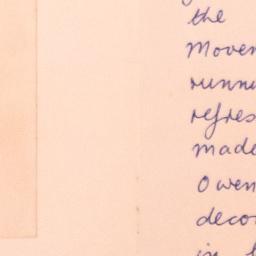 the
Movem
runni
refres
made
Owen
deco
in